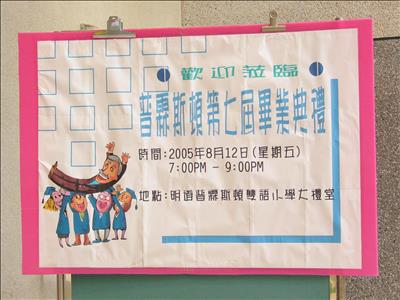 歡迎蒞臨
普霖斯頓第七屆畢業典禮
時間:2005年8月12日(星期五)
7:00PM - 9:00PM
地點:明道普霖斯頓雙語小學大禮堂